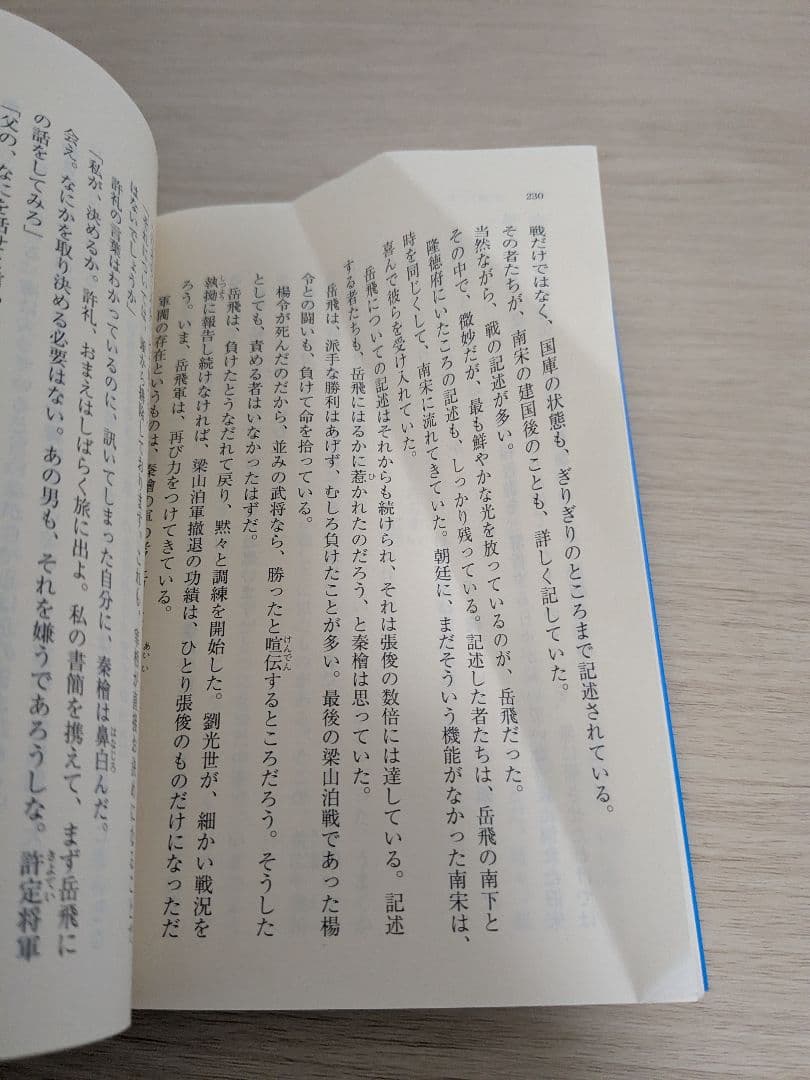 230
戦だけではなく、国庫の状態も、ぎりぎりのところまで記述されている。
その者たちが、南宋の建国後のことも、詳しく記していた。
当然ながら、戦の記述が多い。
その中で、微妙だが、最も鮮やかな光を放っているのが、岳飛だった。
隆徳府にいたころの記述も、しっかり残っている。記述した者たちは、岳飛の南下と
時を同じくして、南宋に流れてきていた。朝廷に、まだそういう機能がなかった南宋は、
喜んで彼らを受け入れていた。
岳飛についての記述はそれからも続けられ、それは張俊の数倍には達している。記述
する者たちも、岳飛にはるかに惹かれたのだろう、と秦檜は思っていた。
岳飛は、派手な勝利はあげず、むしろ負けたことが多い。最後の梁山泊戦であった楊
令との闘いも、負けて命を拾っている。
楊令が死んだのだから、並みの武将なら、勝ったと喧伝するところだろう。そうした
としても、責める者はいなかったはずだ。
岳飛は、負けたとうなだれて戻り、黙々と調練を開始した。劉光世が、細かい戦況を
執拗に報告し続けなければ、梁山泊軍撤退の功績は、ひとり張俊のものだけになっただ
ろう。いま、岳飛軍は、再び力をつけてきている。
軍閥の存在というものは、秦檜の
はないでしょうか」
許礼の言葉はわかっているのに、訊いてしまった自分に、秦檜は鼻白んだ。
「私が、決めるか。許礼、おまえはしばらく旅に出よ。私の書簡を携えて、まず岳飛に
会え。なにかを取り決める必要はない。あの男も、それを嫌うであろうしな。許定将軍
の話をしてみろ」
「父の、なにを話せ